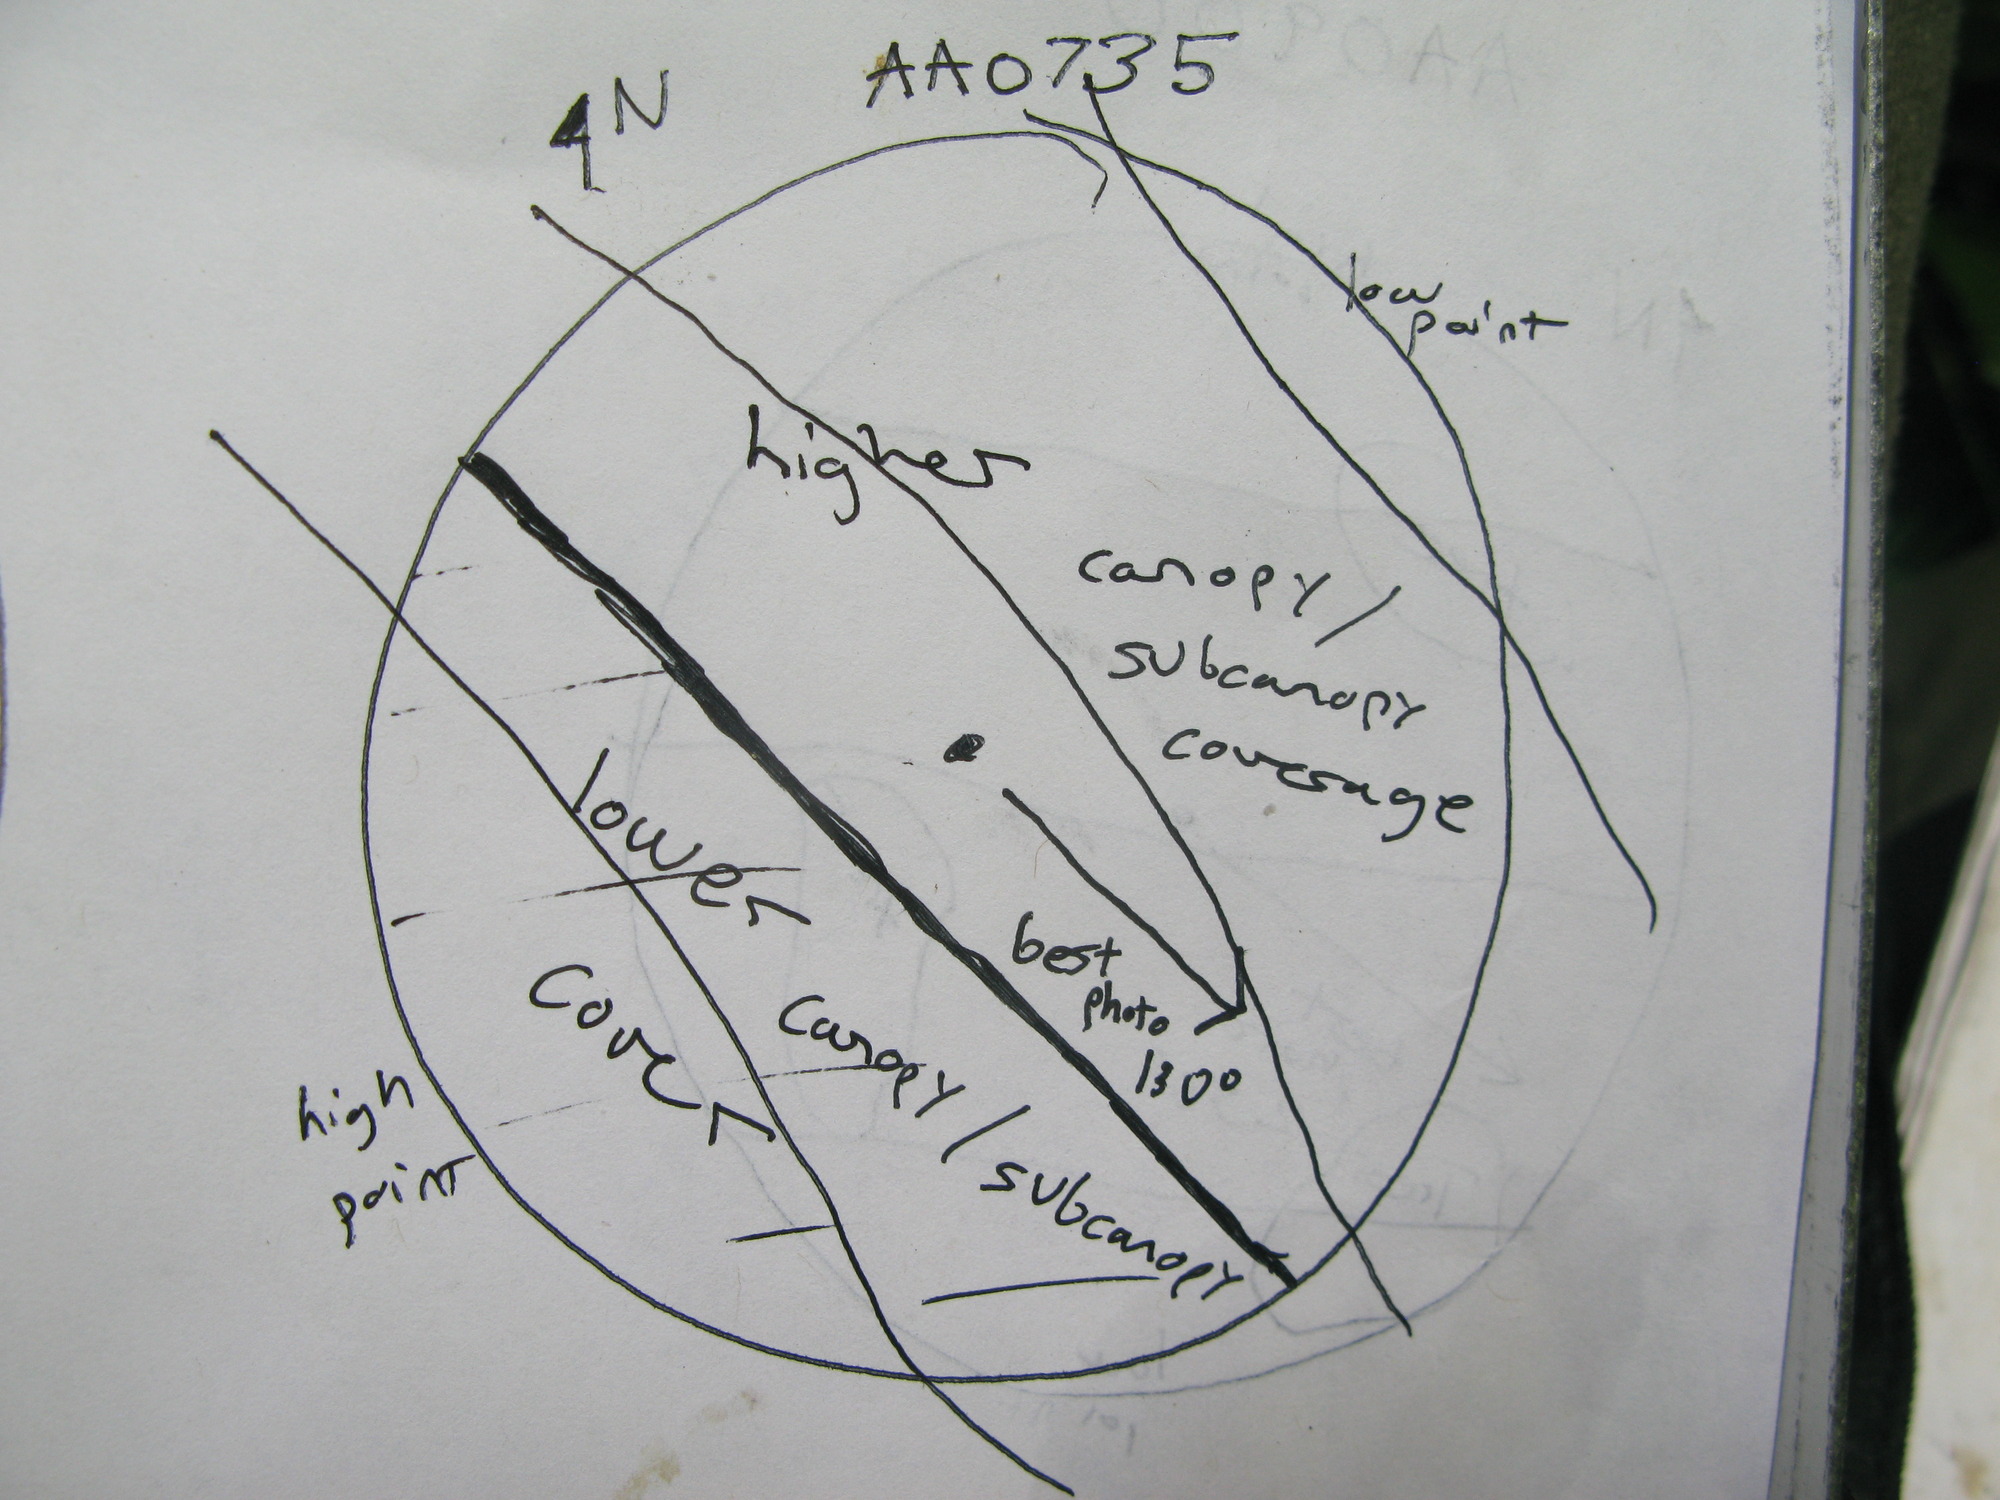 AA0735
N
low
point
higher
canopy /
subcanopy
coverage
best
photo
1300
lower
cover
canopy /
subcanopy
high
point